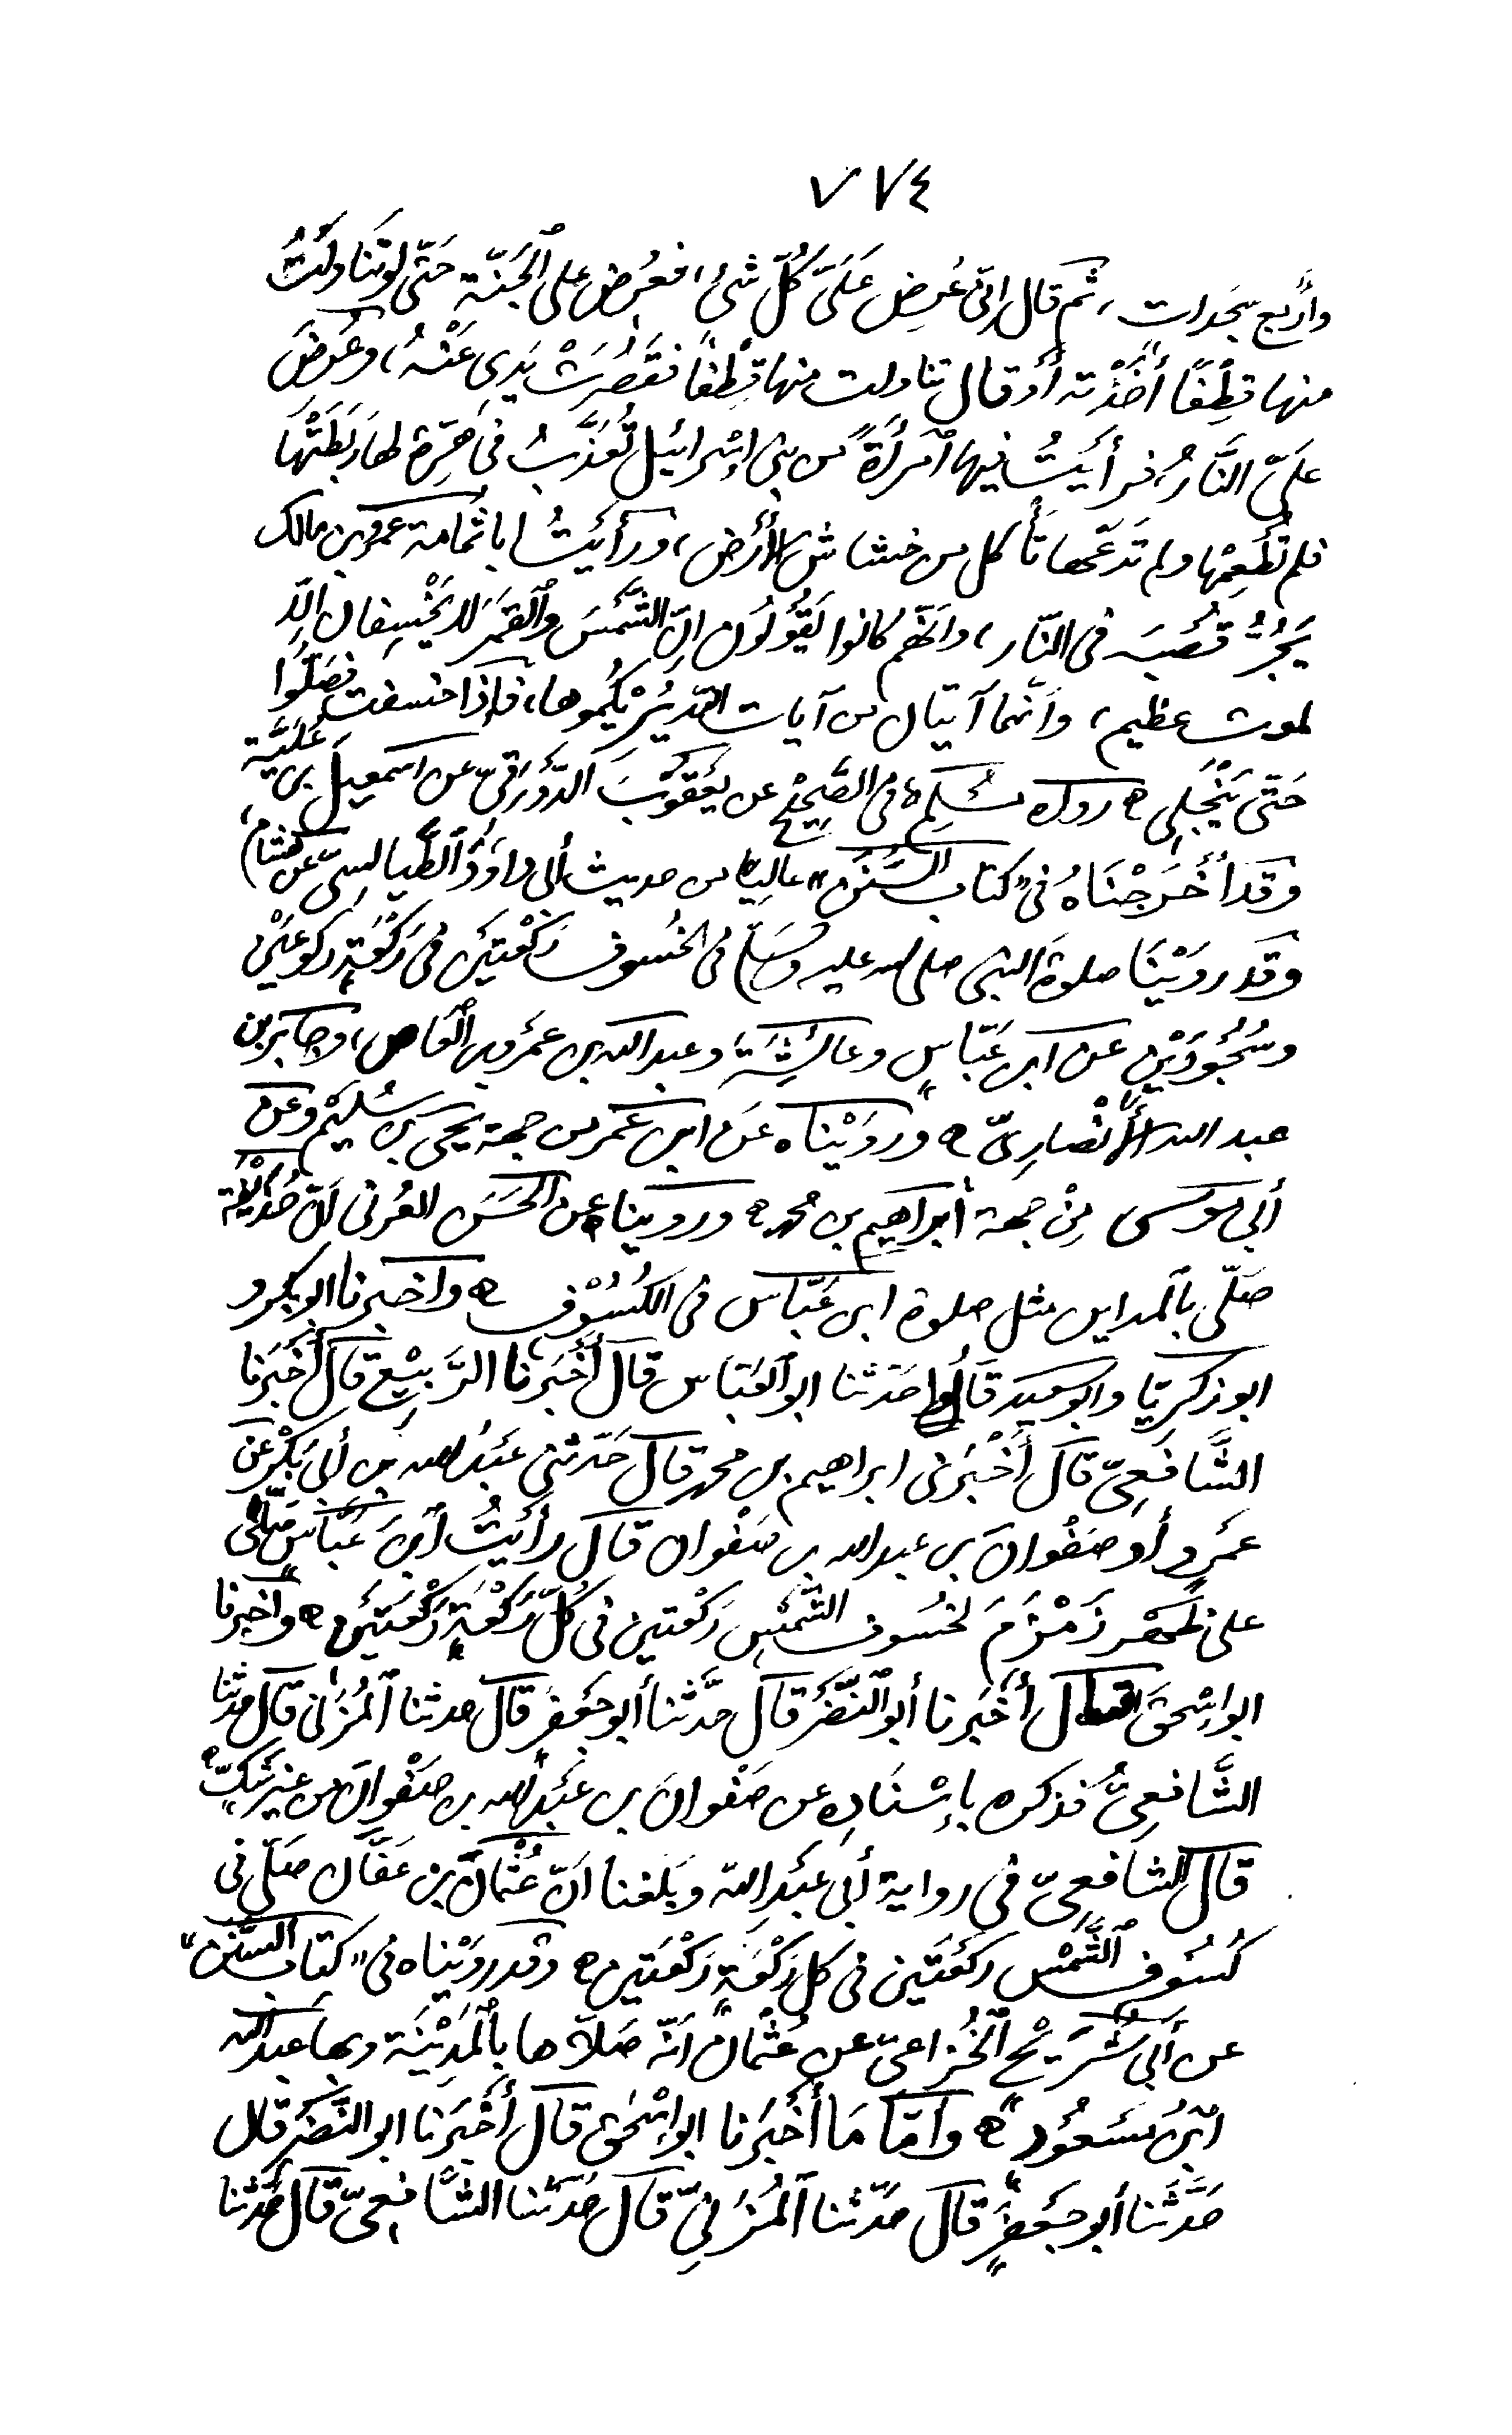 ٧٧٤
وأربع سجدات، ثم قال إنّى عُرِض عَلَىَّ كُلّ شئ، فعُرِض على الجَنّة حَتّى لو تَنَاوَلتُ
منها قِطْفًا أَخَذْته أَوقال تناولت منها قِطْفًا فقَصُرَتْ يَدِى عَنْهُ، وعُرِضَ
علَىّ النّارُ، فرأيَتُ فيها ٱمرأةً من بنى إِسْرائيل تُعَذَّبُ فى هِرّة لها رَبَطَتْهَا
فلم تُطْعِمْها ولم تَدَعْها تَأكل من خشاش الأَرْض، ورَأَيْتُ اباثُمامة عمروبن مالك
يَجُرُّ قُصْبَه فى النّار، وانّهم كانوا يَقُولُون إنّ الشَّمْسَ وٱلقمَرَ لا يَخْسِفان إلّا
لموت عظيم، وانّهما آيتان من آيات الله يُرِيْكُمُوها، فإذا خسفت فصَلُّوا
حَتّى يَنْجَلِى ۞ رواه مُسْلِم فى الصَّحِيْح عن يَعْقُوْبَ الدَّوْرَقىّ عن اسمعيل بن عُلَيَّة
وقَد أَخْرَجْنَاهُ فى «كتاب السُّنَن» عاليا من حديث أبى داوَدَ ٱلطَّيالسىّ عن هشام،
وقَد روَيْنَا صلوة النبى صلى الله عليه وسَلّم فى الخسُوف رَكْعتَيْن فى رَكْعَةٍ ركوعَيْن
وسُجُوْدَيْن عن ابن عَبّاسٍ وعائشة، وعبدالله بن عَمْرو بن ٱلعَاص، وجابربن
عبد الله الأَنْصارِىّ ۞ ورَوَيْناه عَن ابن عُمَر من جهة يحيى بن سُلَيْم وعَن
أبى موسى مِنْ جهة ابراهِيم بن محمد ۞ ورويناه عن الحَسَن العُرنى انّ حُذَيْفة
صَلّى بٱلمداين مثل صلوة ابن عَبّاس فى الكُسُوْف ۞ واخبرنا ابو بكر و
ابو زكريّا وابوسعيد قَالُوا حَدثنا ابو ٱلعَبّاس قال أَخْبَرنا الرَّبِيْع قال أَخْبَرَنا
الشَّافعِىّ قال أَخْبَرَنى ابراهيم بن محمد قال حَدّثنى عَبْدُ الله بن أبى بَكْرٍ عَن
عَمْرو أَو صَفْوانَ بن عبد الله بن صَفْوان قال رأيتُ ٱبنَ عَبّاسٍ صلّى
على ظَهْر زَمْزَمَ لخُسُوف الشَّمْسِ رَكْعتين فى كُلّ رَكْعَةٍ رَكْعَتَيْن ۞ وٱخبرنا
ابو إِسْحٰقَ قال أَخْبَرنا أبو ٱلنَّضْر قال حَدَّثنا أبو جَعْفَر قال حدثنا ٱلمُزَنى قال حدثنا
الشَّافعِىُّ فذكره بإِسْنَادِه عن صَفْوان بن عَبْدالله بن صَفْوان من غير شَكّ ۞
قال الشافعِىّ فى رواية أبى عَبْدِ الله وبَلغنا انّ عُثْمانَ بن عَفّان صَلّى فى
كُسُوف ٱلشَّمْس ركعَتَين فى كل رَكْعَةٍ رَكْعَتين ۞ وقد رويناه فى «كتاب السُّنن»
عن أبى شُرَيْح ٱلخُزاعىّ عن عُثْمانَ انّه صَلاّها بٱلمَدِيْنَة وبها عبدالله
ٱبنُ مَسْعُود ۞ وامّا مَا أَخْبَرَنا ابو إسْحٰق قال أَخْبَرَنا ابو النَّضْر قال
حَدَّثَنا أبو جَعْفَرٍ قال حَدّثنا ٱلمُزَنىّ قال حَدّثنا الشَّافعىّ قال حَدّثنا